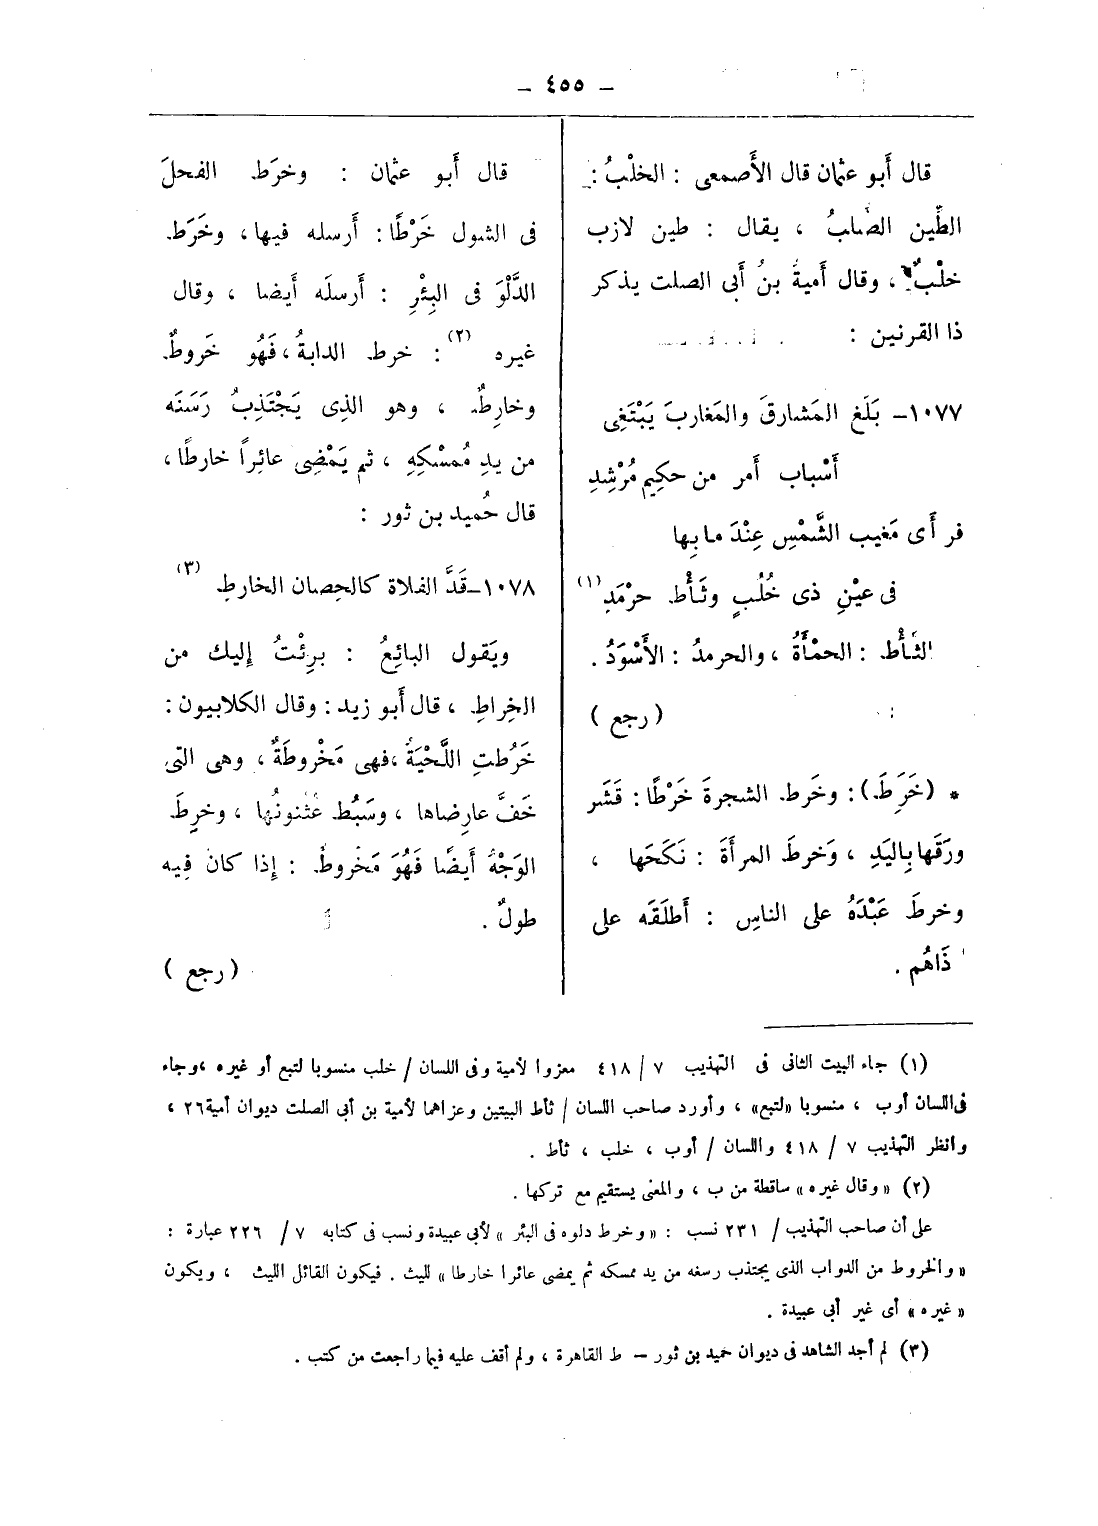 – ٤٥٥ –
قال أَبو عثمان قال الأَصمعى : الخلْبُ :
الطِّين الصُلبُ ، يقال : طين لازب
خلْبٌ ، وقال أُميةُ بنُ أَبى الصلت يذكر
ذا القرنين :
١٠٧٧– بَلَغ المَشارقَ والمَغاربَ يَبْتَغِى
أَسْباب أَمر من حكِيم مُرْشِدِ
فرأَى مَغيب الشَّمْسِ عِنْدَ مابِها
فى عيْنِ ذى خُلُبٍ وثَأْط حرْمَدِ (١)
الثَأْط : الحمْأَةُ ، والحرمدُ : الأَسْوَدُ .
( رجع )
* (خَرَطَ) : وخَرط الشجرةَ خَرْطًا : قَشَر
ورَقَها بِاليَدِ ، وَخرطَ المرأَةَ : نَكَحَها ،
وخرطَ عَبْدَهُ على الناسِ : أَطلَقَه على
ذَاهُم .
قال أَبو عثمان : وخرَط الفحلَ
فى الشول خَرْطًا : أَرسله فيها ، وخَرَط
الدَّلْوَ فى البِئْرِ : أَرسلَه أَيضا ، وقال
غيره (٢) : خرط الدابةُ ، فَهُو خَروطٌ
وخارِطٌ ، وهو الذِى يَجْتَذِبُ رَسَنَه
من يدِ مُمسْكِهِ ، ثم يَمْضِى عائِراً خارطًا ،
قال حُميد بن ثور :
١٠٧٨–قَدَّ الفلاة كالحِصان الخارطِ (٣)
ويَقول البائِعُ : برِئْتُ إِليك من
الخِراطِ ، قال أَبو زيد : وقال الكلابيون :
خَرُطتِ اللَّحْيَةُ ، فهى مَخْروطَةٌ ، وهى التى
خَفَّ عارِضاها ، وسَبُط عُثنونُها ، وخرِطَ
الوَجْهُ أَيضًا فَهُوَ مَخروطٌ : إِذا كان فِيه
طولٌ .
( رجع )
(١) جاء البيت الثانى فى التهذيب ٧ / ٤١٨ معزوا لأمية وفى اللسان / خلب منسوبا لتبع أو غيره ، وجاء
فى اللسان أوب ، منسوبا «لتبع» ، وأورد صاحب اللسان / ثأط البيتين وعزاهما لأمية بن أبى الصلت ديوان أمية ٢٦ ،
وانظر التهذيب ٧ / ٤١٨ واللسان / أوب ، خلب ، ثأط .
(٢) «وقال غيره» ساقطة من ب ، والمعنى يستقيم مع تركها .
على أن صاحب التهذيب / ٢٣١ نسب : «وخرط دلوه فى البئر» لأبى عبيدة ونسب فى كتابه ٧ / ٢٢٦ عبارة :
«والخروط من الدواب الذى يجتذب رسغه من يد ممسكه ثم يمضى عائرا خارطا» لليث . فيكون القائل الليث ، ويكون
«غيره» أى غير أبى عبيدة .
(٣) لم أجد الشاهد فى ديوان حميد بن ثور – ط القاهرة ، ولم أقف عليه فيما راجعت من كتب .